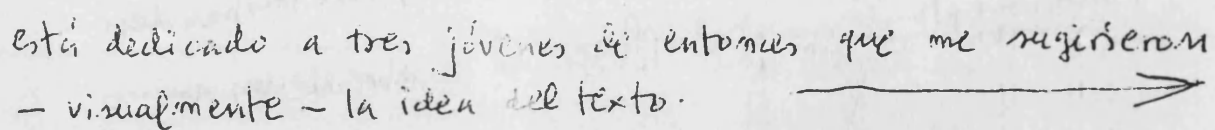 está dedicado a tres jóvenes de entonces que me sugirieron
– visualmente – la idea del texto.